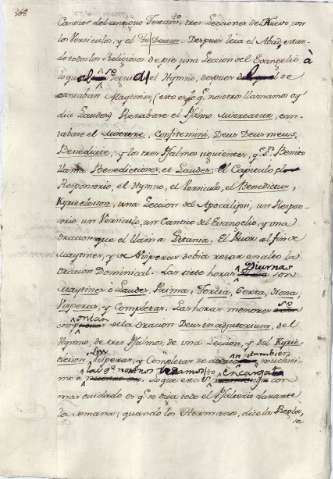 Cantico del antiguo Testamto, tres Lecciones de Nuevo con
los Versiculos, y el Te Deum. Despues leia el Abad estando
todos los Religiosos de pie, una Leccion del Evangelio, à
la que el Hymno, despues de
cantaban Maytines (esto es lo qe nosotros llamamos oy
dia Laudes) Rezabase el Psalmo
tabase el Miserere, Confitemini, Deus Deus meus,
Benedicite, y los tres Psalmos siguientes, qe Sn Benito
llama Benedictiones, et Laudes. El Capitulo,
Responsorio, el Hymno, el Versiculo, el Benedictus,
Kyrie eleyson, una Leccion del Apocalipsi, un Responsorio,
un Versiculo, un Cantico del Evangelio, y una
oracion que el llama Letania. El Prior al fin de
Maytines, y de Visperas debia rezar en alto la
oracion Dominical. Las siete horas Diurnas son
Maytines o Laudes, Prima, Tercia, Sexta, Nona,
Visperas, y Completas. Las horas menores
de la oracion Deus in adjutorium, del
Hymno, de tres Psalmos, de una Leccion, y del Kyrie
eleison, Visperas, y Completas
mo las qe nosotros rezamos. Lo que encargaba con
mas cuidado es qe se diga todo el Psalterio durante
la semana; quando los Hermanos, dice la Regla,